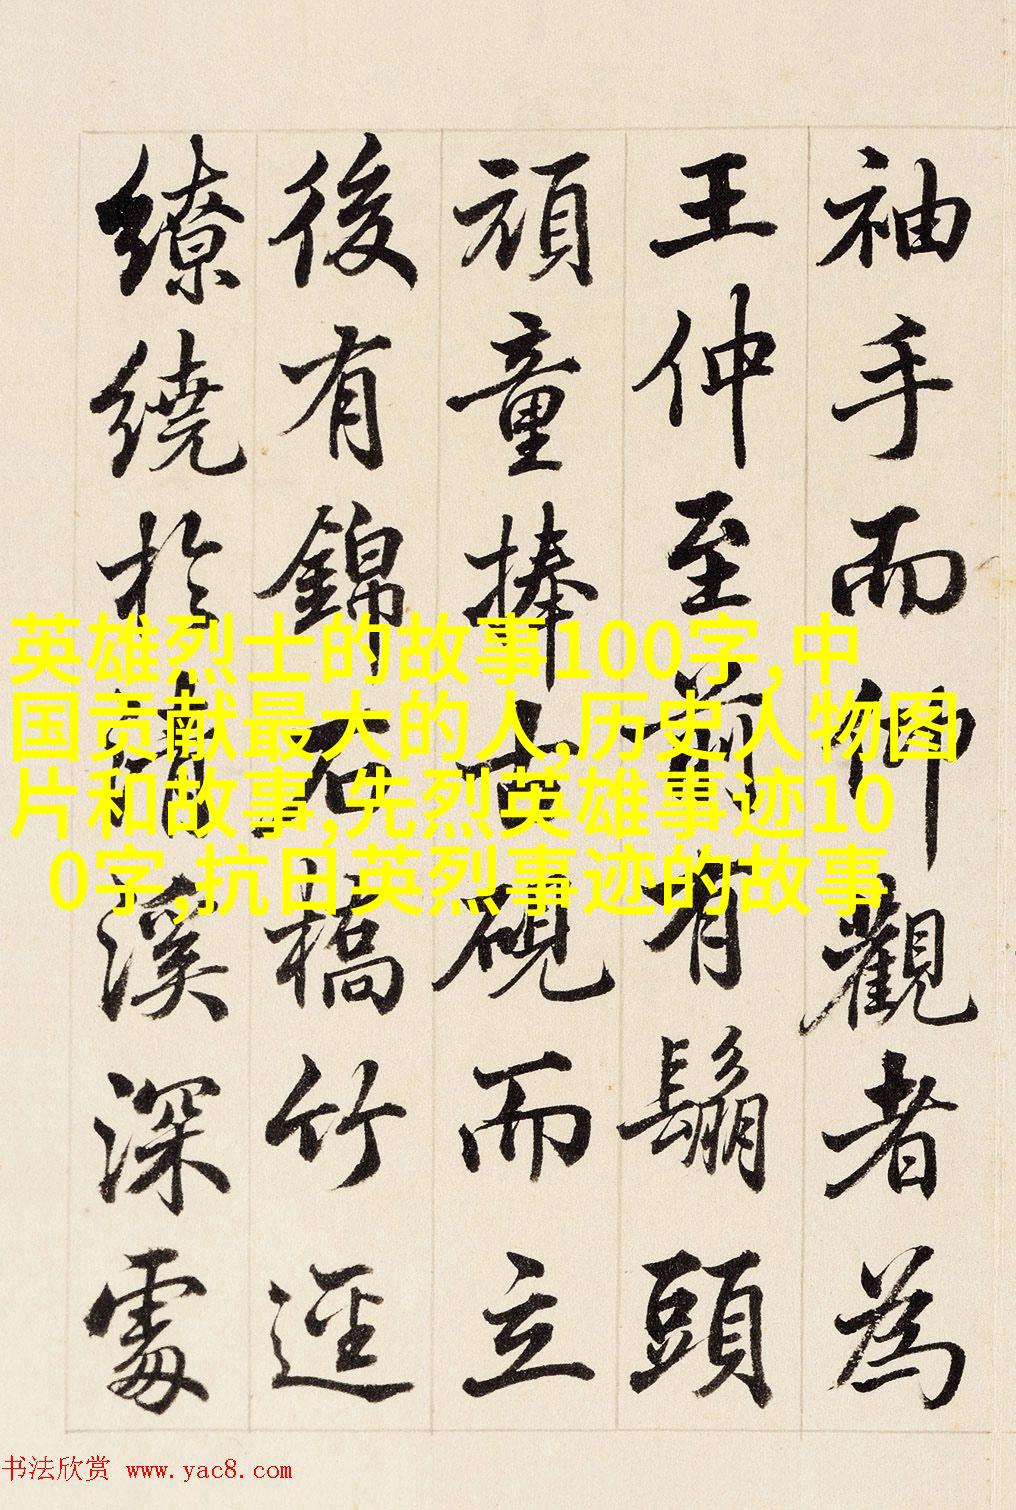 袖手而仰觀者為
王仲至前有鬅頭
頑童捧古硯而立
後有錦石橋竹逕
繚繞於清溪深處
英雄烈士的故事100字,中
国贡献最大的人,历史人物图
片和故事,先烈英雄事迹10
0字,抗日英烈事迹的故事
书法欣赏 www.yac8.com